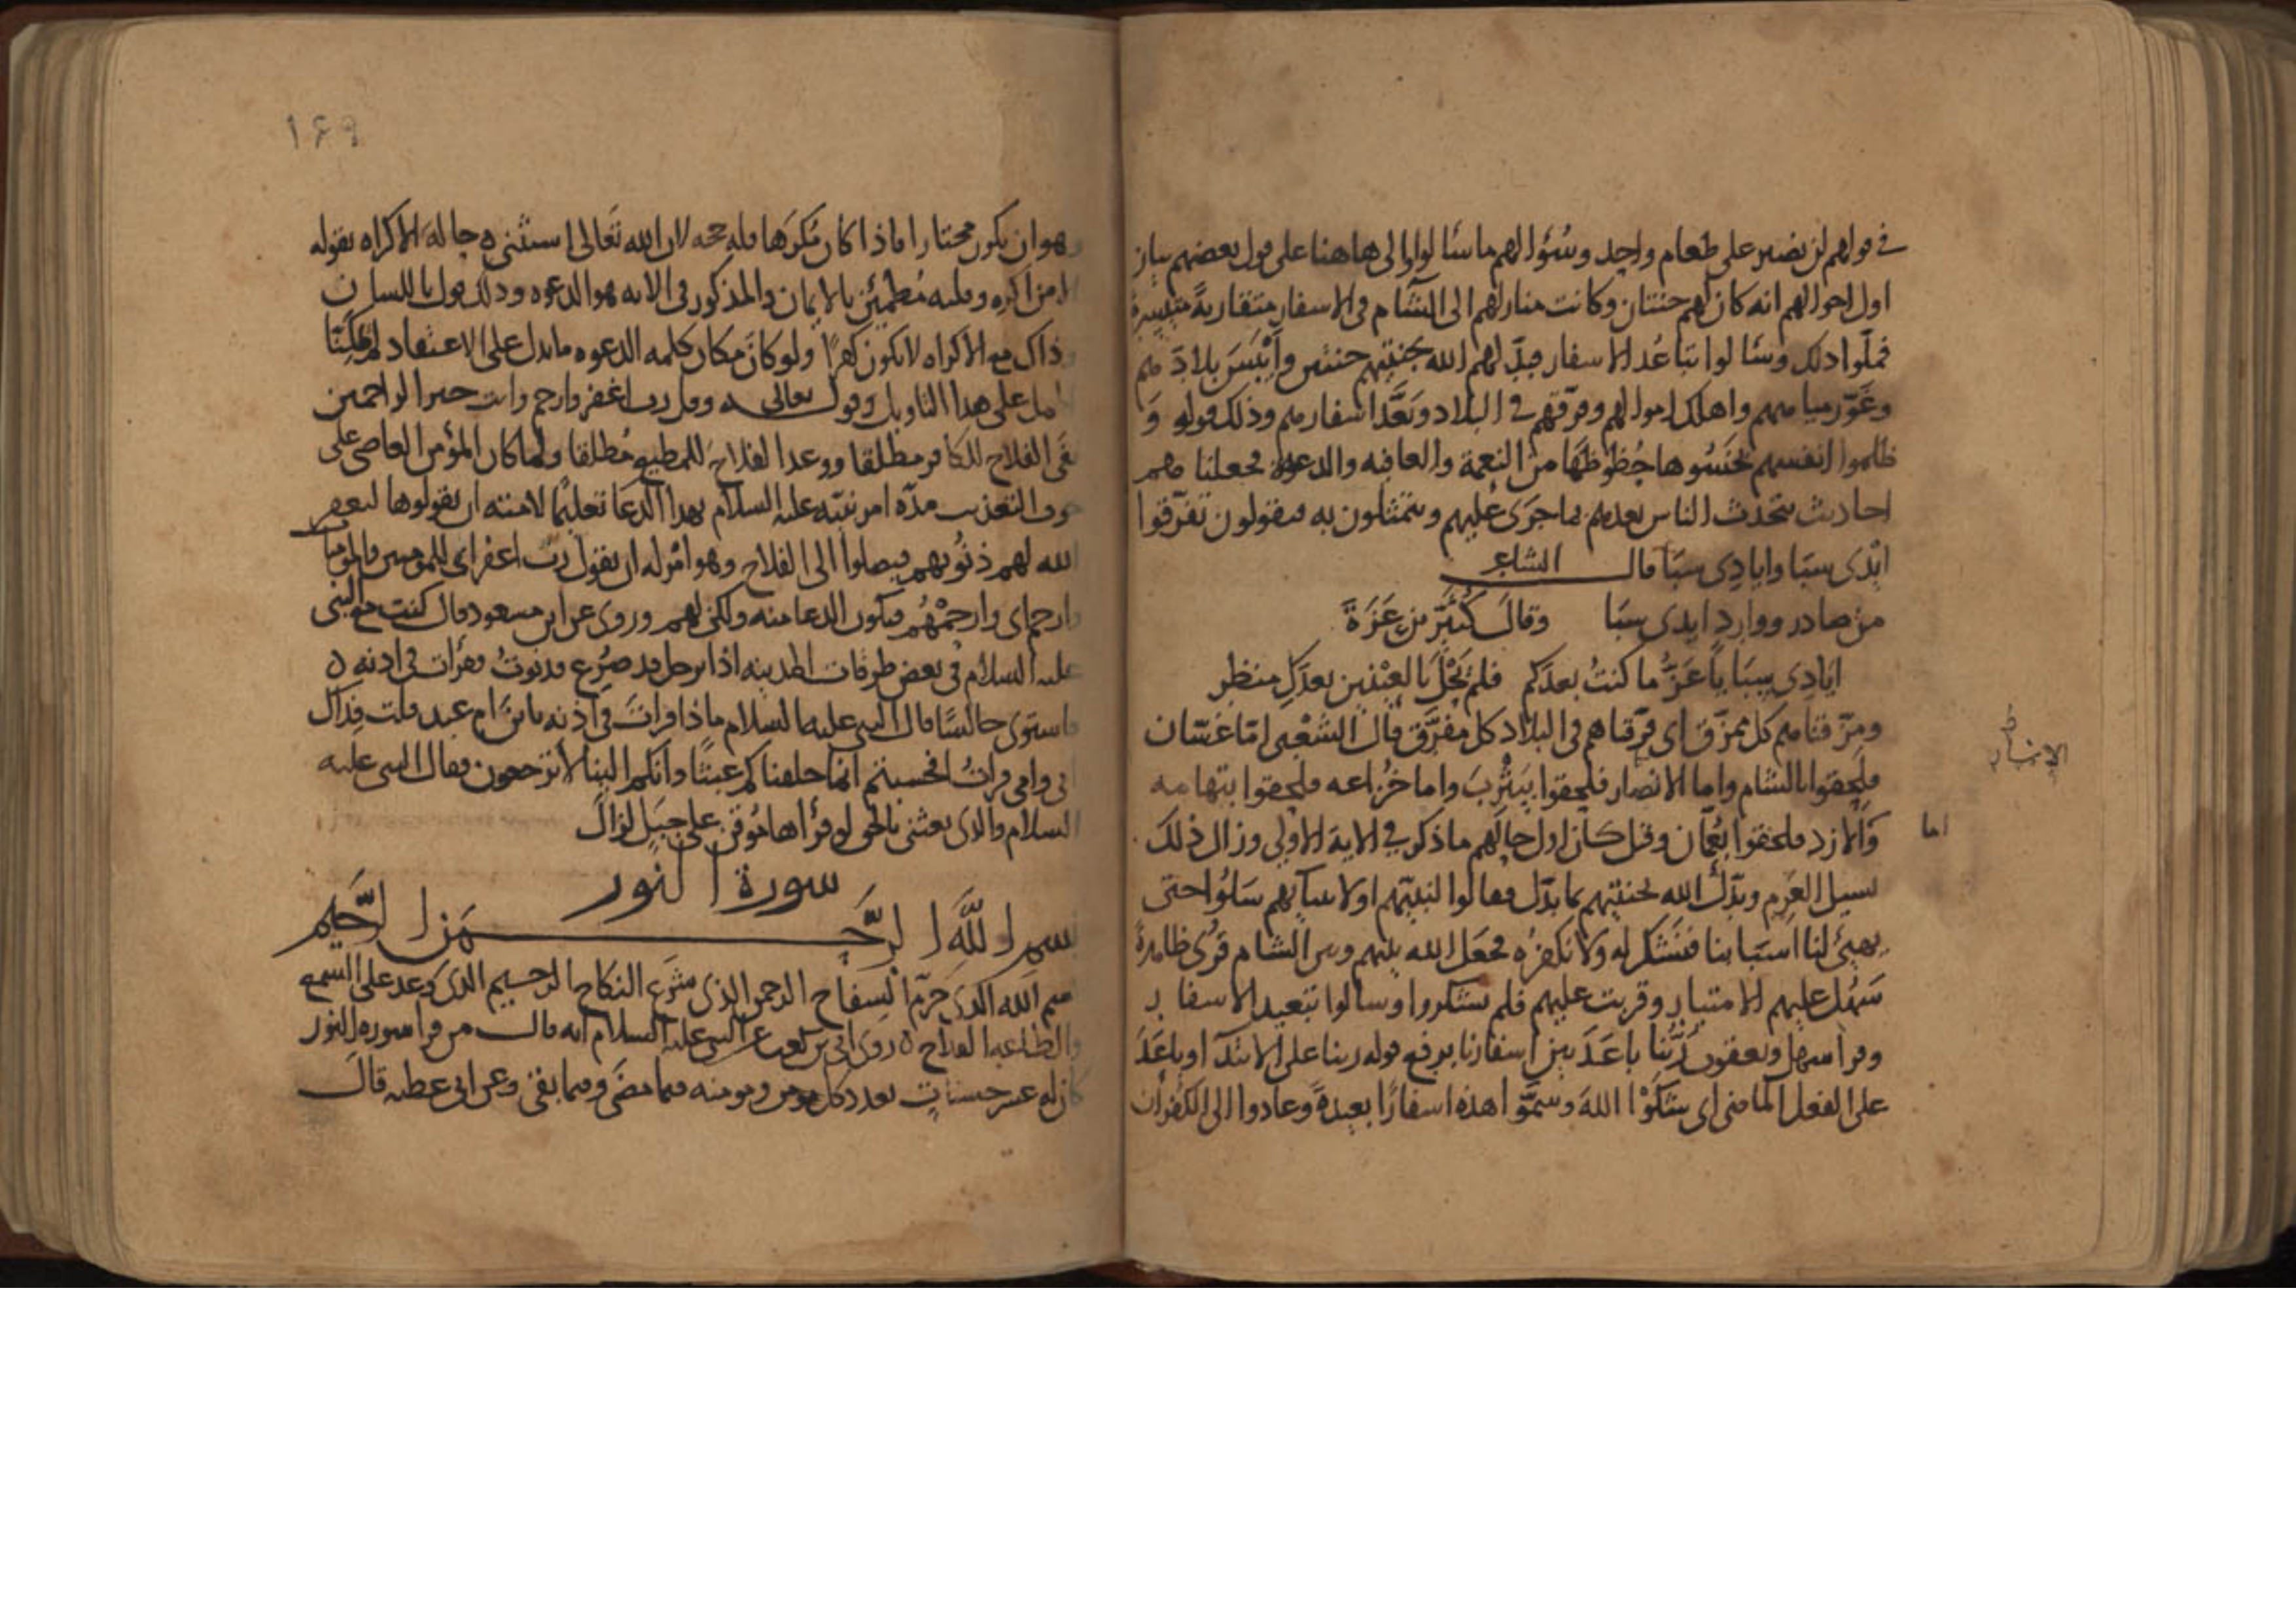 في قولهم لن نصبر على طعام واحد وسؤالهم ما سألوا والى هاهنا على قول بعضهم بيان
اول احوالهم انه كان لهم جنتان وكانت منازلهم الى الشام في الاسفار متقاربة متيسرة
فملوا ذلك وسألوا تباعد الاسفار فبدل لهم الله بجنتيهم جنتين وأيبس بلادهم
وغور مياههم واهلك اموالهم وفرقهم في البلاد وبعد اسفارهم وذلك قوله و
ظلموا انفسهم بخسوها حظوظها من النعمة والعافيه والدعة فجعلنا هم
احاديث يتحدث الناس بعدهم بما جرى عليهم ويتمثلون به فيقولون تفرقوا
ايدى سبا وايادى سبا قال الشاعر
من صادر ووارد ايدى سبا وقال كثير بن عزة
ايادى سبا يا عز ما كنت بعدكم فلم يحل بالعينين بعدك منظر
ومزقناهم كل ممزق اى فرقناهم في البلاد كل مفرق قال الشعبى اما غسان
فلحقوا بالشام واما الانصار فلحقوا بيثرب واما خزاعه فلحقوا بتهامه
والازد فلحقوا بعمان وقيل كان اول حالهم ما ذكر في الاية الاولى وزال ذلك
اما
بسيل العرم وبدل الله جنتيهم بما بدل فقالوا لنبيهم او لانبيائهم سلوا حتى
يهيئ لنا اسبابنا فنشكر له ولا نكفره فجعل الله بينهم وبين الشام قرى ظاهرة
سهل عليهم الامتيار وقربت عليهم فلم يشكروا وسالوا تبعيد الاسفار
وقرأ سهل ويعقوب ربنا باعد بين اسفارنا برفع قوله ربنا على الابتدا وباعد
على الفعل الماضى اى شكوا الله وسموا هذه اسفارا بعيدة وعادوا الى الكفران
١٦٩
وهو ان يكون مختارا فاذا كان مكرها فله حجه لان الله تعالى استثنى حالة الاكراه بقوله
الا من اكره وقلبه مطمئن بالايمان والمذكور في الايه هو الدعوه وذلك قول باللسان
وذاك مع الاكراه لا يكون كفرا ولو كان مكان كلمه الدعوه ما يدل على الاعتقاد
على هذا التاويل وقوله تعالى وقل رب اغفر وارحم وانت خير الراحمين
نفى الفلاح للكافر مطلقا ووعد الفلاح للمطيع مطلقا ولما كان المؤمن العاصى على
خوف التعذيب مدة امر نبيه عليه السلام بهذا الدعا تعليما لامته ان يقولوها ليغفر
الله لهم ذنوبهم فيصلوا الى الفلاح وهو امر له ان يقول رب اغفر اى للمومنين
وارحم اى وارحمهم فيكون الدعا منه ولكن لهم وروى عن ابن مسعود قال كنت مع النبى
عليه السلام في بعض طرقات المدينه اذا برجل قد صرع فدنوت فقرأت في اذنه
فاستوى جالسا قال النبى عليه السلام ماذا قرأت في اذنه يا بن ام عبد قلت فداك
ابى وامى قرأت افحسبتم انما خلقناكم عبثا وانكم الينا لا ترجعون فقال النبى عليه
السلام والذى بعثنى بالحق لو قرأها موقن على جبل لزال
سورة النور
بسم الله الرحمن الرحيم
بسم الله الذى حرم السفاح الرحمن الذى شرع النكاح الرحيم الذى وعد على السمع
والطاعه الفلاح روى ابى بن كعب عن النبى عليه السلام انه قال من قرأ سوره النور
كان له عشر حسنات بعدد كل مومن ومومنه فيما مضى وفيما بقى وعن ابى عطيه قال